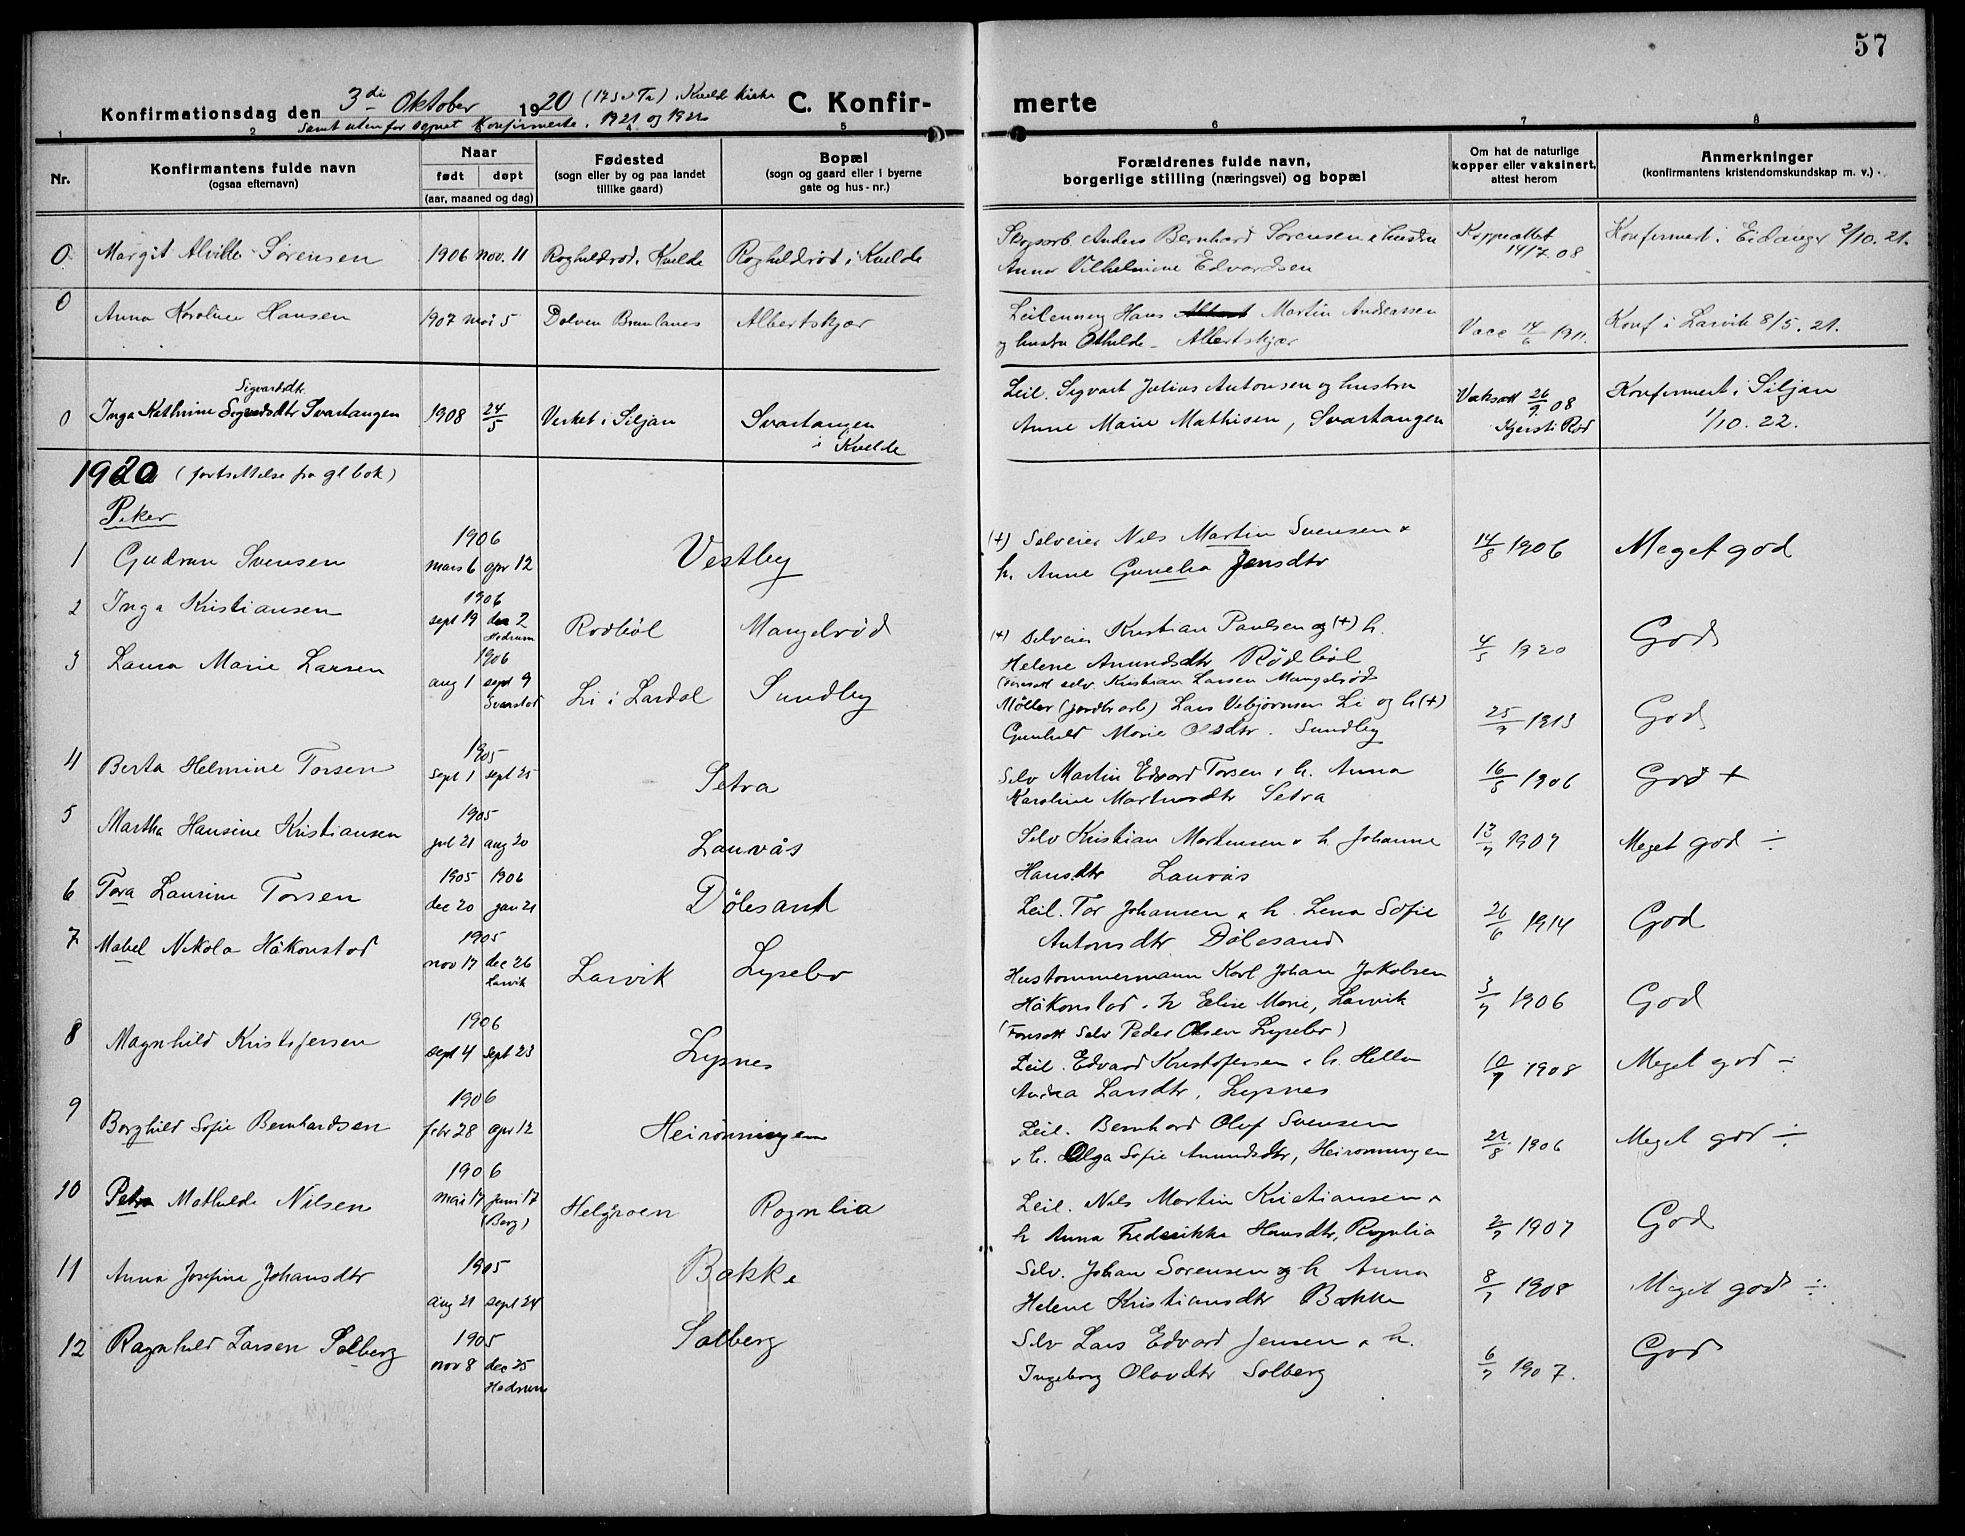 57
Konfirmationsdag den 3di Oktober 1920 (17 S e Tr) i Kveld kirke C. Konfir- merte
samt utenfor sognet Konfirmerte. 1921 og 1922
1 2 4 5 6 7 8
Nr. Konfirmantens fulde navn (ogsaa efternavn) Naar født døpt (aar, maaned og dag) Fødested (sogn eller by og paa landet tillike gaard) Bopæl (sogn og gaard eller i byerne gate og hus-nr.) Forældrenes fulde navn, borgerlige stilling (næringsvei) og bopæl Om hat de naturlige kopper eller vaksinert, attest herom Anmerkninger (konfirmantens kristendomskundskap m. v.)
0 Margit Alvilde Sørensen 1906 nov. 11 Rogheldrød. Kvelde Rogheldrød i Kvelde Skogsarb. Anders Bernhard Sørensen & hustru Koppeattet Konfirmert i Eidanger 2/10. 21.
Anna Vilhelmine Edvardsen 14/7 08
0 Anna Karoline Hansen 1907 mai 5 Dolven Brunlanes Albertskjær Leilending Hans Martin Andreassen Vacc 14/6 1911. Konf i Larvik 8/5. 21.
og hustru Othilde - Albertskjær
0 Inga Kathrine Sigvardsdtr Svartangen 1908 24/5 Verket i Siljan Svartangen i Kvelde Leil. Sigvart Julius Antonsen og hustru Vaksatt 26/9. 08 Konfirmert i Siljan
Sigvartsdtr.
Anne Marie Mathisen, Svartangen Kjersti Rød 1/10. 22.
1920 (fortsettelse fra gl bok)
Piker
1 Gudrun Svensen 1906 mars 6 apr 12 Vestby (+) Selveier Nils Martin Svensen & 14/8 1906 Meget god
h. Anne Gunelia Jensdtr
2 Inga Kristiansen 1906 sept 19 des 2 Hedrum Rødbøl Mangelrød (+) Selveier Kristian Paulsen og (+) h. 4/5 1920 God
Helene Amundsdtr Rødbøl
(Forsatt selv. Kristian Larsen Mangelrød
3 Laura Marie Larsen 1906 aug 1 sept 9 Svarstad Li i Lardal Sundby Møller (jordbrarb) Lars Vebjørnsen Li og h (+) 25/9 1913 God
Gunhild Marie Olsdtr. Sundby
4 Berta Helmine Torsen 1905 sept 1 sept 25 Setra Selv Martin Edvard Torsen & h. Anna 16/5 1906 God +
Karoline Martinsdtr Setra
5 Martha Hansine Kristiansen 1905 jul 21 aug 20 Lauvås Selv Kristian Martinsen & h Johanne 13/7 1907 Meget god ÷
Hansdtr Lauvås
6 Tora Laurine Torsen 1905 1906 dec 20 jan 21 Dølesand Leil. Tor Johansen & h. Lena Sofie 26/6 1914 God
Antonsdtr Dølesand
7 Mabel Nikola Håkonstad 1905 nov 17 dec 26 Larvik Larvik Lysebo Hustømmermann Karl Johan Jakobsen 3/7 1906 God
Håkonstad & h Elise Marie, Larvik
(Forsatt Selv Peder Olsen Lysebo)
8 Magnhild Kristofersen 1906 sept 4 sept 23 Lysnes Leil. Edvard Kristofersen & h. Hella 10/7 1908 Meget god ÷
Andrea Larsdtr, Lysnes
9 Borghild Sofie Bernhardsen 1906 febr 28 apr 12 Heirønningen Leil. Bernhard Oluf Svensen 21/8 1906 Meget god ÷
& h. Olga Sofie Amundsdtr, Heirønningen
10 Petra Mathilde Nilsen 1906 mai 17 juni 17 (Berg) Helgeroen Rognlia Leil. Nils Martin Kristiansen & 2/7 1907 God
h Anna Fredrikke Hansdtr, Rognlia
11 Anna Josefine Johansdtr 1905 aug 21 sept 24 Bakke Selv. Johan Sørensen og h Anna 8/7 1908 Meget god ÷
Helene Kristiansdtr Bakke
12 Ragnhild Larsen Solberg 1905 nov 8 dec 25 Hedrum Solberg Selv Lars Edvard Jensen & h. 6/7 1907. God
Ingeborg Olavdtr Solberg